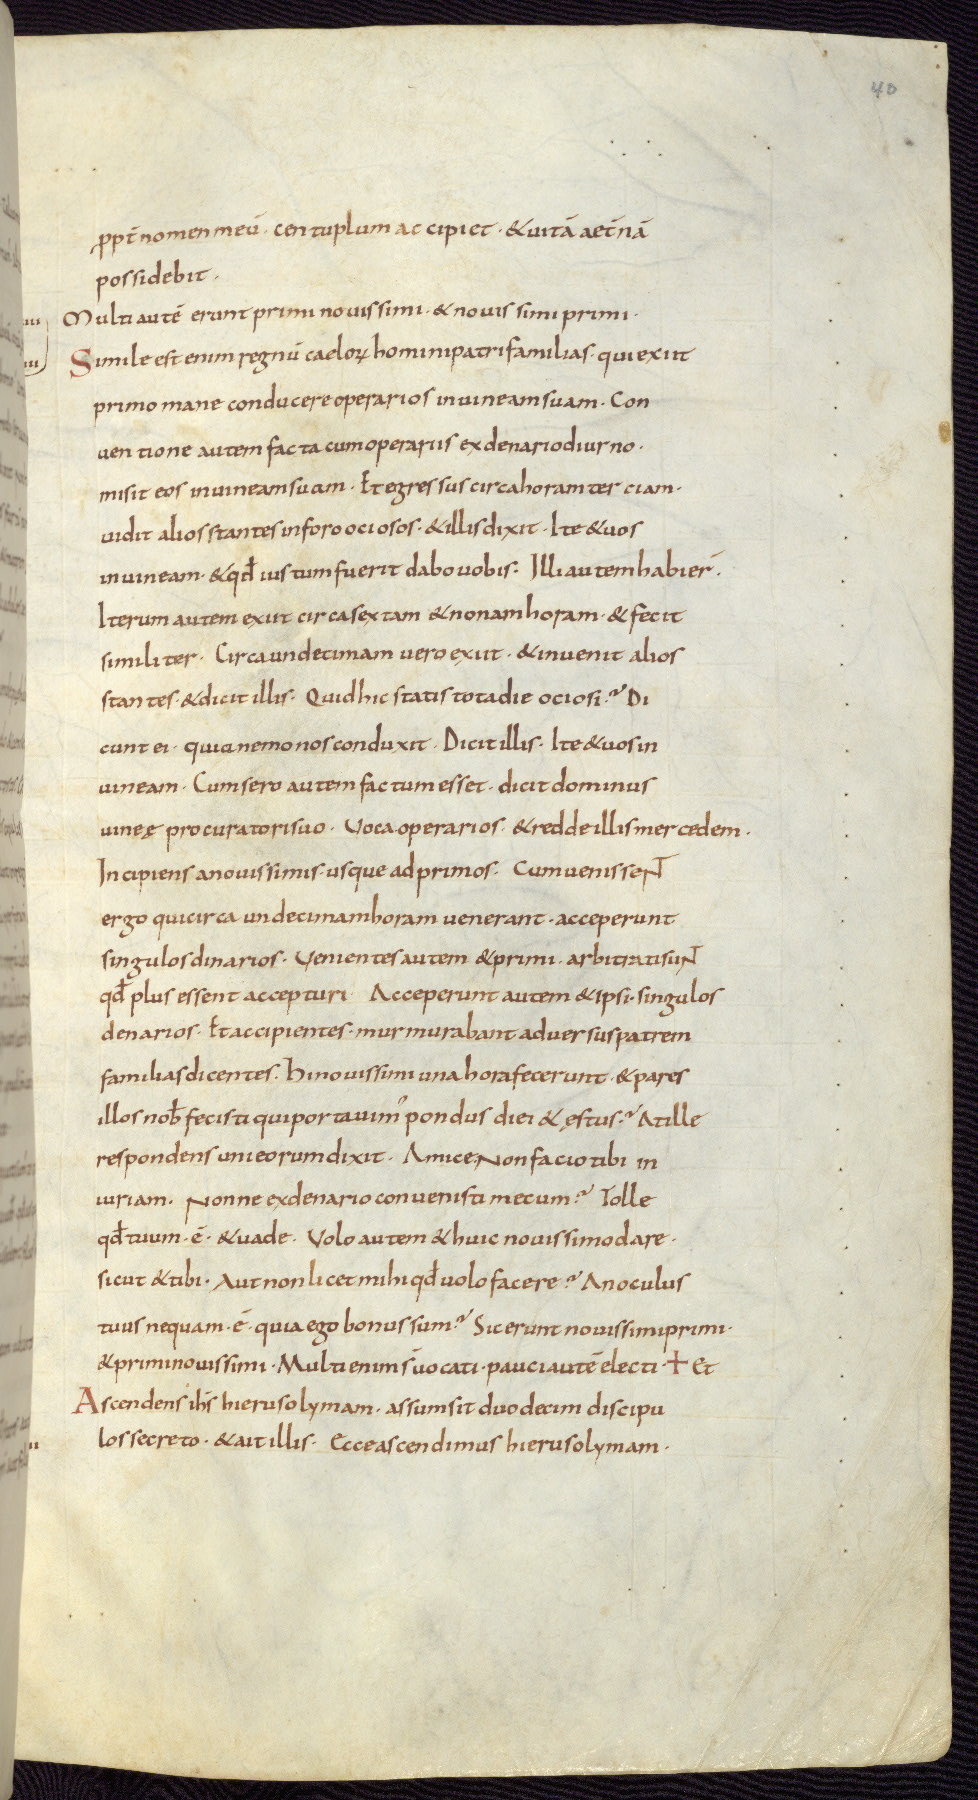 40
ppt̄ nomen meū · centuplum accipiet · & uitā aet̄nā
possidebit ·
Multi autē erunt primi nouissimi · & nouissimi primi ·
Simile est enim regnū caeloꝝ homini patrifamilias · qui exiit
primo mane conducere operarios in uineam suam · Con
uentione autem facta cum operariis ex denario diurno ·
misit eos in uineam suam · Et egressus circa horam terciam ·
uidit alios stantes in foro ociosos · & illis dixit · Ite & uos
in uineam · & qđ iustum fuerit dabo uobis : Illi autem habier̄ ·
Iterum autem exiit circa sextam & nonam horam · & fecit
similiter · Circa undecimam uero exiit · & inuenit alios
stantes · & dicit illis · Quid hic statis tota die ociosi ? Di
cunt ei · quia nemo nos conduxit · Dicit illis · Ite & uos in
uineam · Cum sero autem factum esset · dicit dominus
uineę procuratori suo · Uoca operarios · & redde illis mercedem ·
Incipiens a nouissimis · usque ad primos · Cum uenissent
ergo qui circa undecimam horam uenerant · acceperunt
singulos dinarios · Uenientes autem & primi · arbitrati sunt
qđ plus essent accepturi Acceperunt autem & ipsi · singulos
denarios · Et accipientes · murmurabant aduersus patrem
familias dicentes · Hi nouissimi una hora fecerunt · & pares
illos nob̄ fecisti qui portauim᾿ pondus diei & ęstus ? At ille
respondens uni eorum dixit · Amice Non facio tibi in
iuriam · Nonne ex denario conuenisti mecum ? Tolle
qđ tuum · ē · & uade · Volo autem & huic nouissimo dare ·
sicut & tibi · Aut non licet mihi qđ uolo facere ? An oculus
tuus nequam · ē · quia ego bonus sum ? Sic erunt nouissimi primi ·
& primi nouissimi · Multi enim s̄ uocati · pauci autē electi · + Et
Ascendens ih̄s hierusolymam · assumsit duodecim discipu
los secreto · & ait illis · Ecce ascendimus hierusolymam ·